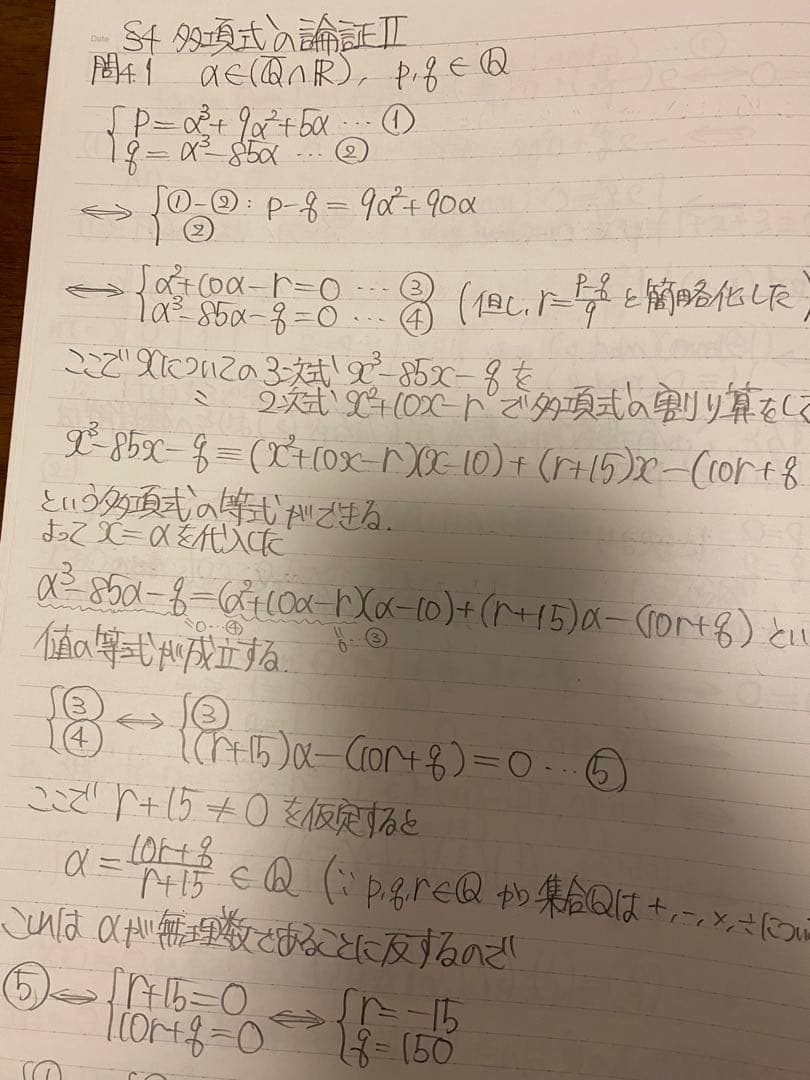 Date
§4 多項式の論証Ⅱ
問4.1 α∈(ℚ̅∩ℝ), p,q∈ℚ
{p=α³+9α²+5α…①
q=α³-85α…②
⟺{①-②: p-q=9α²+90α
②
⟺{α²+10α-r=0…③
α³-85α-q=0…④ (但し、r=(p-q)/9 と簡略化した)
ここでxについての3次式x³-85x-qを
〃 2次式x²+10x-rで多項式の割り算をして
x³-85x-q≡(x²+10x-r)(x-10)+(r+15)x-(10r+q
という多項式の等式ができる.
よってx=αを代入した
α³-85α-q=(α²+10α-r)(α-10)+(r+15)α-(10r+q) とい
0…④ 0…③
値の等式が成立する.
{③
④ ⟺ {③
(r+15)α-(10r+q)=0…⑤
ここで r+15≠0を仮定すると
α=(10r+q)/(r+15)∈ℚ (∵p,q,r∈ℚ かつ集合ℚは+,-,×,÷につい
これはαが無理数であることに反するので
⑤⟺{r+15=0
10r+q=0 ⟺ {r=-15
q=150